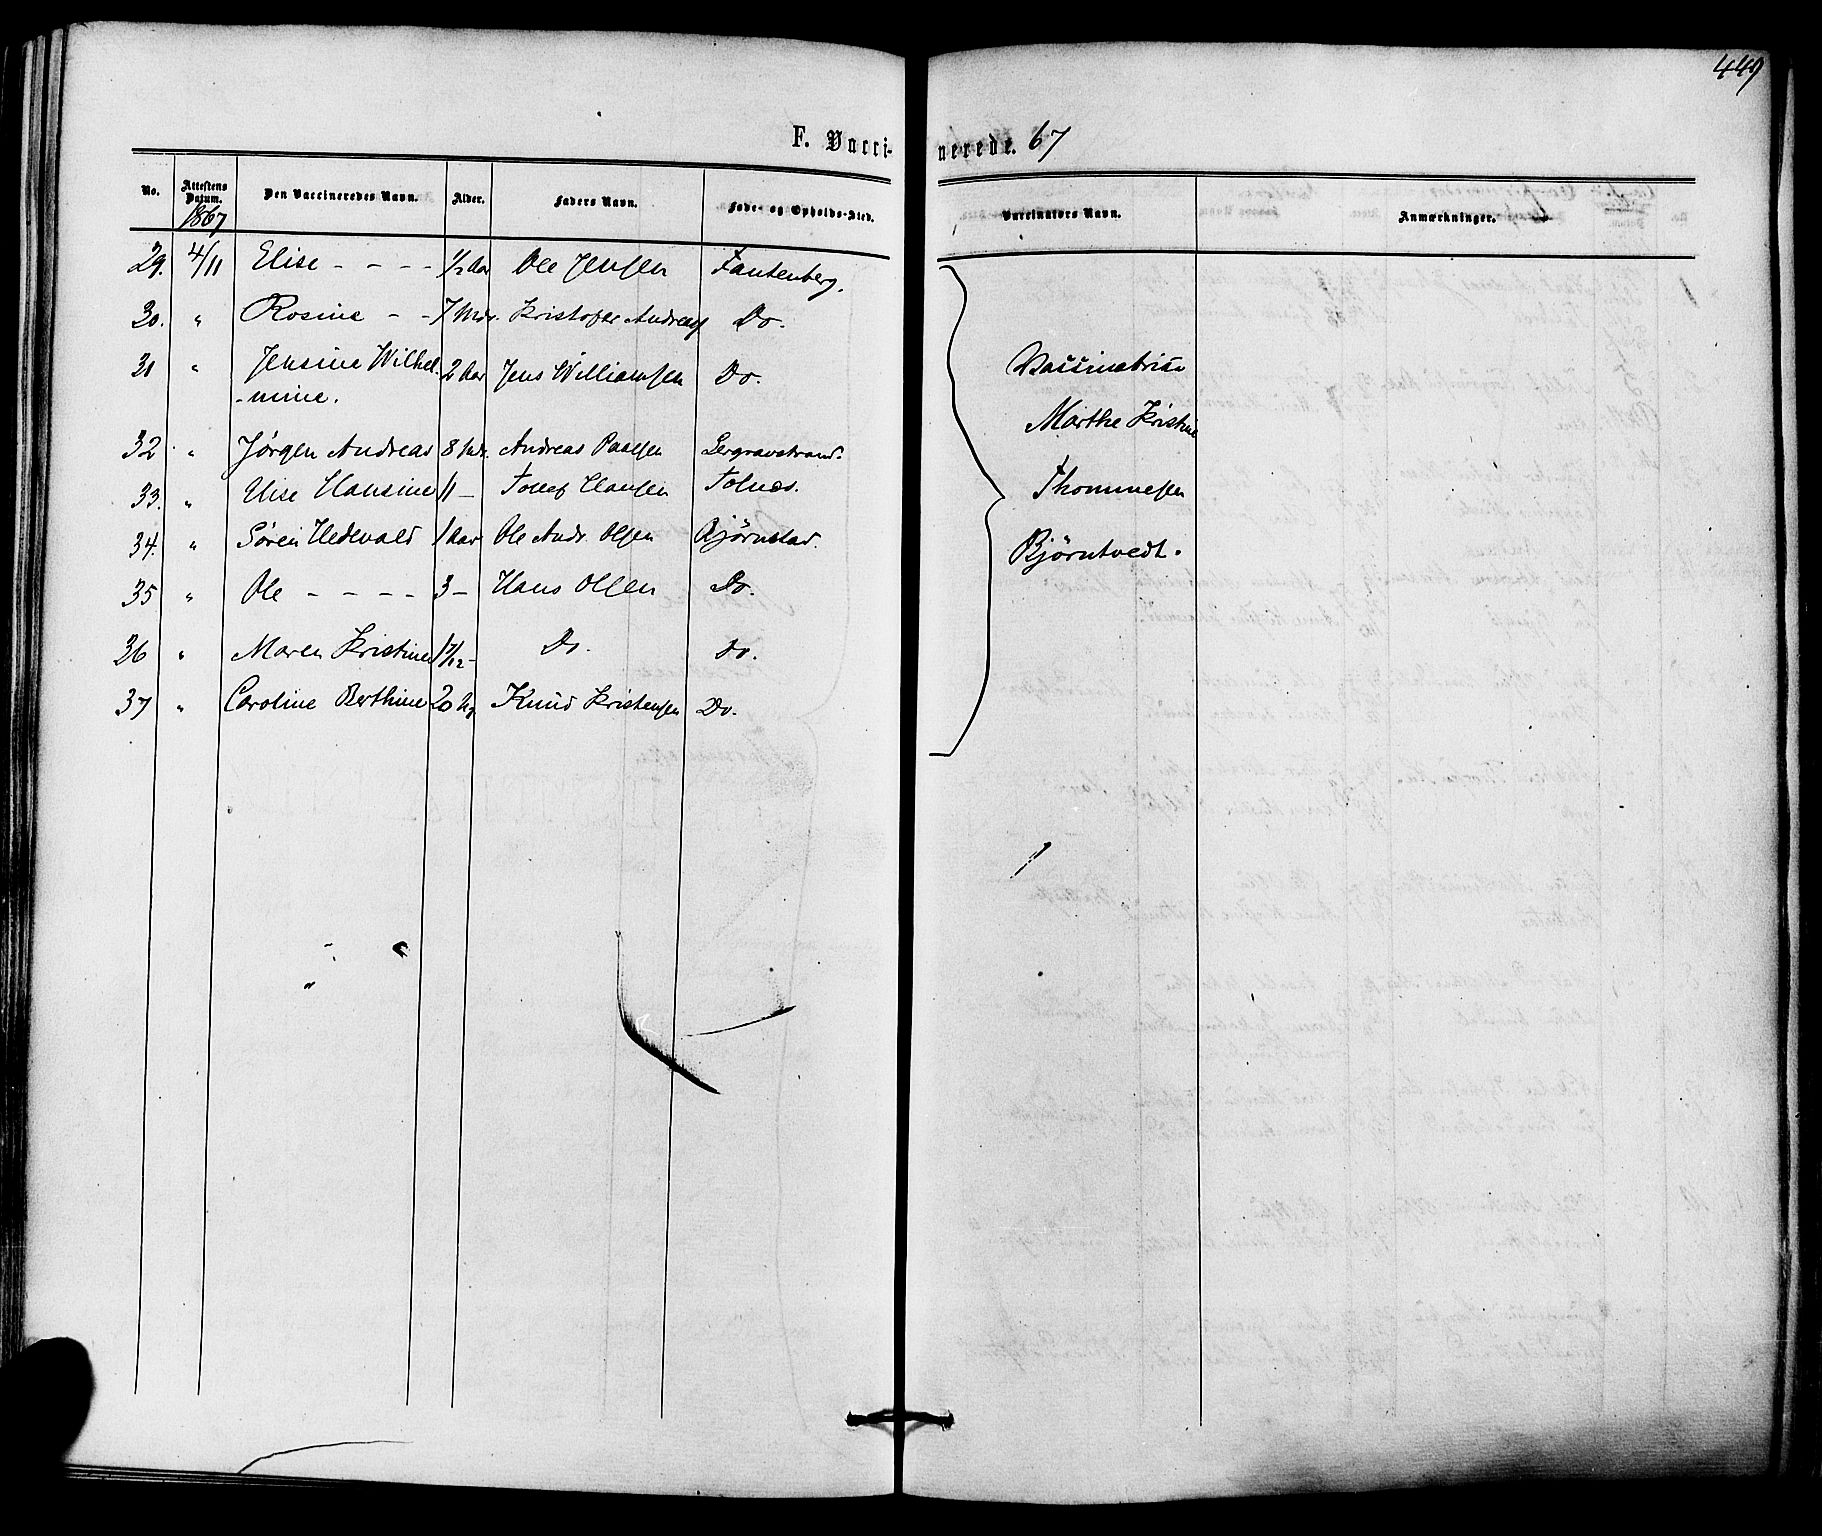 449
F. Vacci- nerede. 67
No. Attestens Datum. Den Vaccineredes Navn. Alder. Faders Navn. Føde- og Opholds-Sted. Vaccinators Navn. Anmærkninger.
1867
29. 4/11 Elise - - - - 1/2 Aar Ole Jensen Fantenberg.
30. " Rosine - - 7 Mdr. Kristofer Andreas Do.
31 " Jensine Wilhel- 2 Aar Jens Williamsen Do.
-mine.
32 " Jørgen Andreas 8 Mdr. Andreas Paalsen Lergravstrand.
33. " Elise Hansine 11 - Tollef Hansen Tolnes.
34. " Søren Hedevald 1 Aar Ole Andr. Olsen Bjørnstad.
35 " Ole - - - - 3 - Hans Olsen Do.
36 " Maren Kristine 1 7/12 - Do. Do.
37 " Caroline Berthine 20 Knud Kristensen Do.
Vaccinatrise
Marthe Kristine
Thommesen
Bjørntvedt.